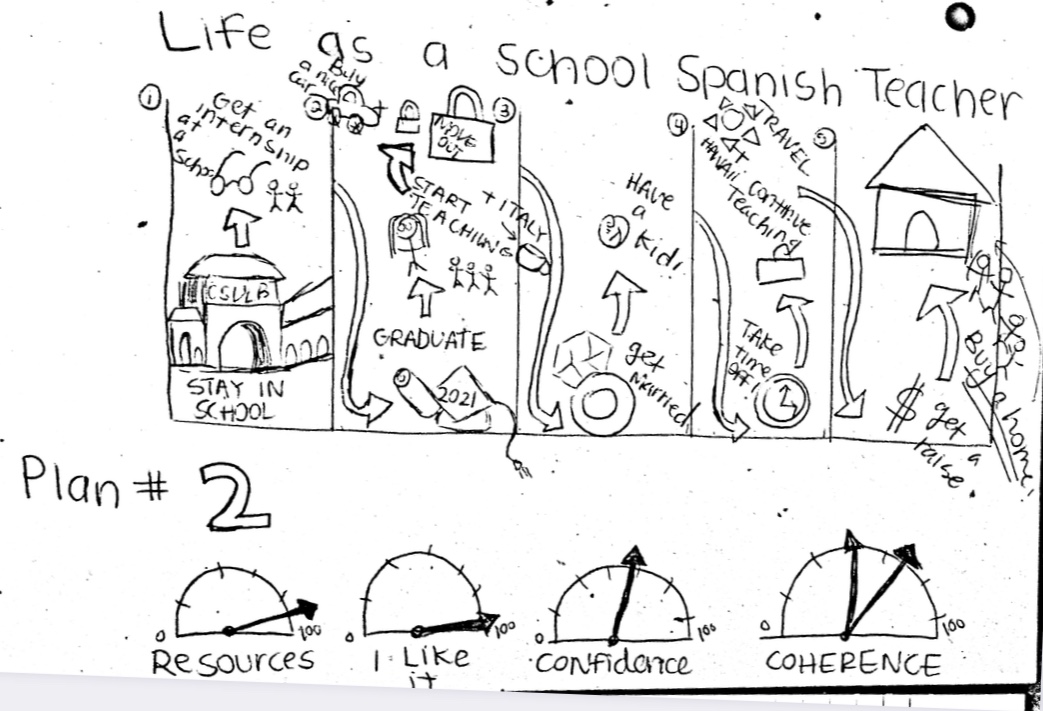 Life as a School Spanish Teacher
①
Get an
internship
at
a
school
CSULB
STAY IN
SCHOOL
②
Buy
a nice
car
+
MOVE
OUT
START
TEACHING
GRADUATE
2021
③
+ ITALY
HAVE
a
Kid!
get
married
④
TRAVEL
HAWAII
+
continue
Teaching
TAKE
Time
OFF!
⑤
$ get a
raise.
Buy a home!
Plan # 2
0 100
Resources
0 100
I Like
it
0 100
Confidence
0 100
COHERENCE